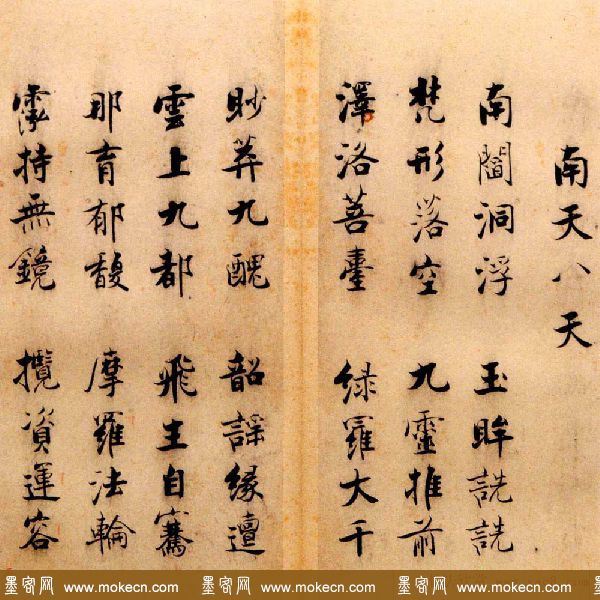 南天八天
南閻洞浮 玉眸詵詵
梵形落空 九靈推前
澤洛菩臺 綠羅大千
眇莽九醜 韶謠緣邅
雲上九都 飛生自騫
那育郁馥 摩羅法輪
霐持無鏡 攬資運容
墨客网 www.mokecn.com 墨客网 www.mokecn.com 墨客网 www.mokecn.com